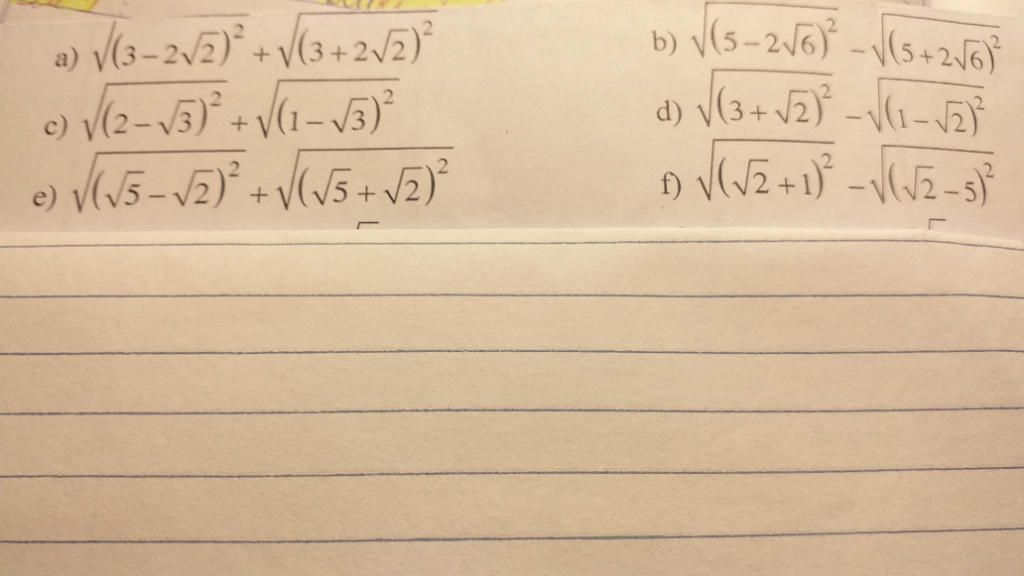 a) √(3−2√2)² + √(3+2√2)² b) √(5−2√6)² − √(5+2√6)²
c) √(2−√3)² + √(1−√3)² d) √(3+√2)² − √(1−√2)²
e) √(√5−√2)² + √(√5+√2)² f) √(√2+1)² − √(√2−5)²